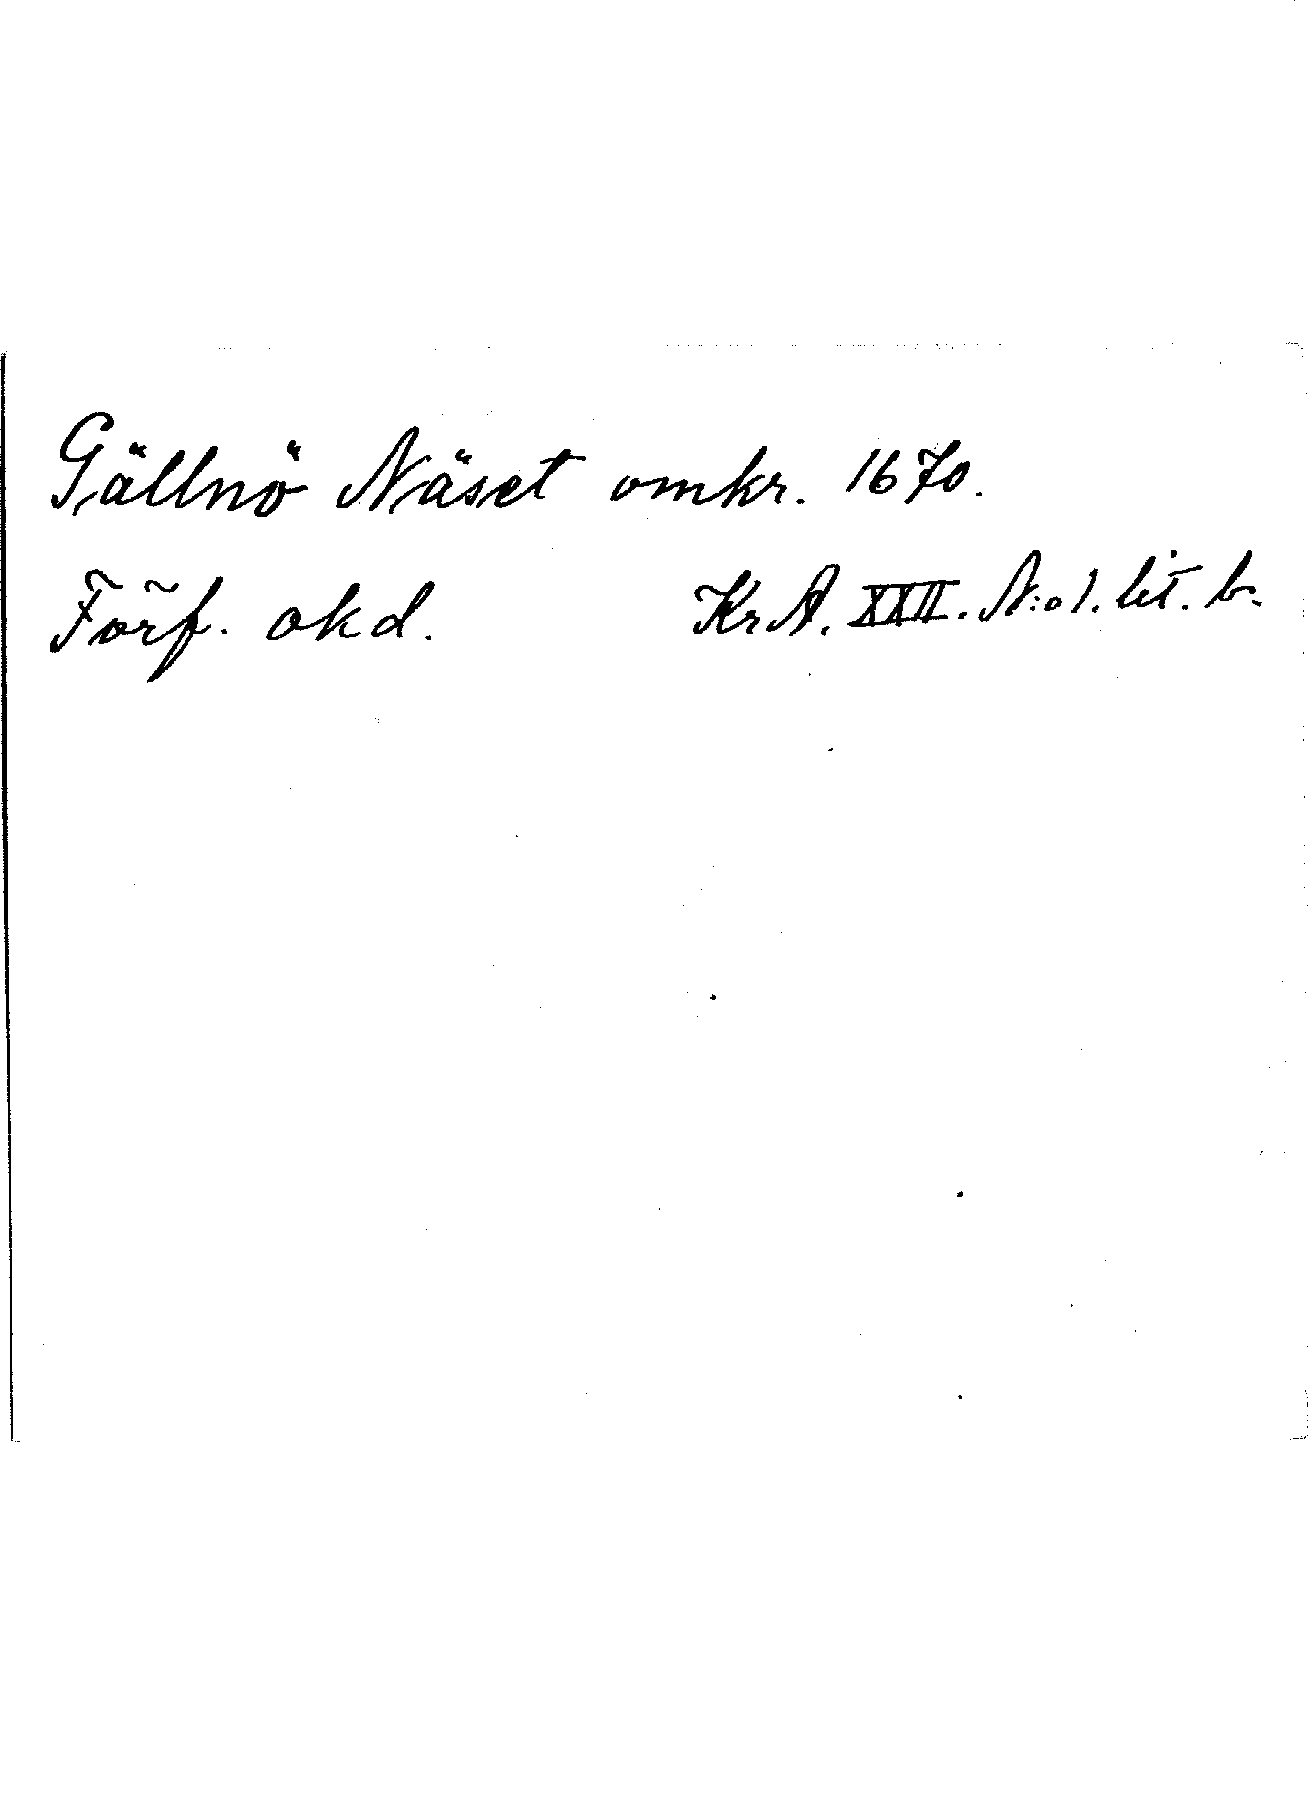 Gällnö Näset omkr. 1670.
Förf. okd. Kr A. XXII. N:o 1. lit. b.